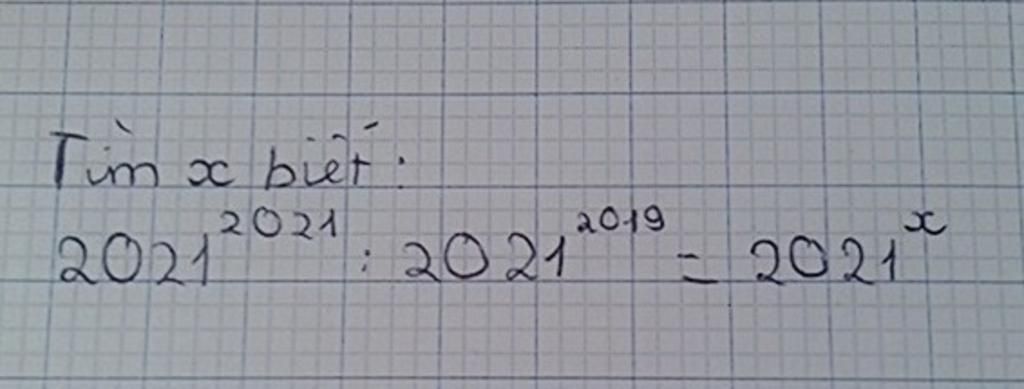 Tìm x biết:
2021²⁰²¹ : 2021²⁰¹⁹ = 2021ˣ